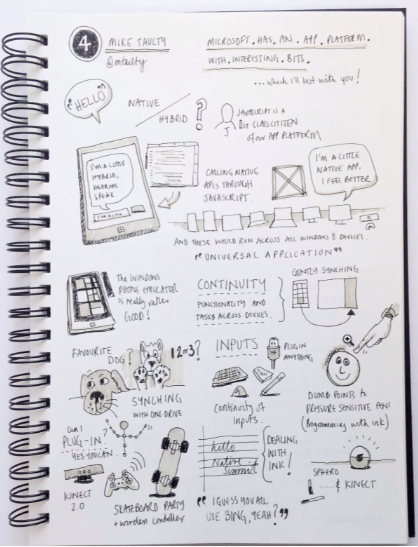 4
MIKE TAULTY
@mtaulty
MICROSOFT. HAS. AN. APP. PLATFORM.
WITH. INTERESTING. BITS.
...which I'll test with you!
"HELLO"
NATIVE
HYBRID ?
JAVASCRIPT IS A
1st CLASS CITIZEN
of our APP PLATFORM
I'M A LITTLE
HYBRID,
HEAR ME
SPEAK
I'm a little
CALLING NATIVE
APIS THROUGH
JAVASCRIPT.
I'M A LITTLE
NATIVE APP.
I FEEL BETTER
AND THESE WOULD RUN ACROSS ALL WINDOWS 8 DEVICES.
"UNIVERSAL APPLICATION"
THE WINDOWS
PHONE EMULATOR
is really rather
GOOD!
CONTINUITY
FUNCTIONALITY AND
TASKS ACROSS DEVICES.
GENTLY SYNCHING
FAVOURITE
DOG?
1 2 or 3?
SYNCHING
WITH ONE DRIVE
INPUTS
PLUG IN
ANYTHING
Continuity of
Inputs.
DUMB POINTS to
PRESSURE SENSITIVE PENS
(programming with ink)
can I
PLUG-IN?
YES YOU CAN
KINECT
2.0
SKATEBOARD PARTY
+ wireless controller
hello
Native
Summit
DEALING
WITH
INK!
"I GUESS YOU ALL
USE BING, YEAH?"
SPHERO
..... & KINECT